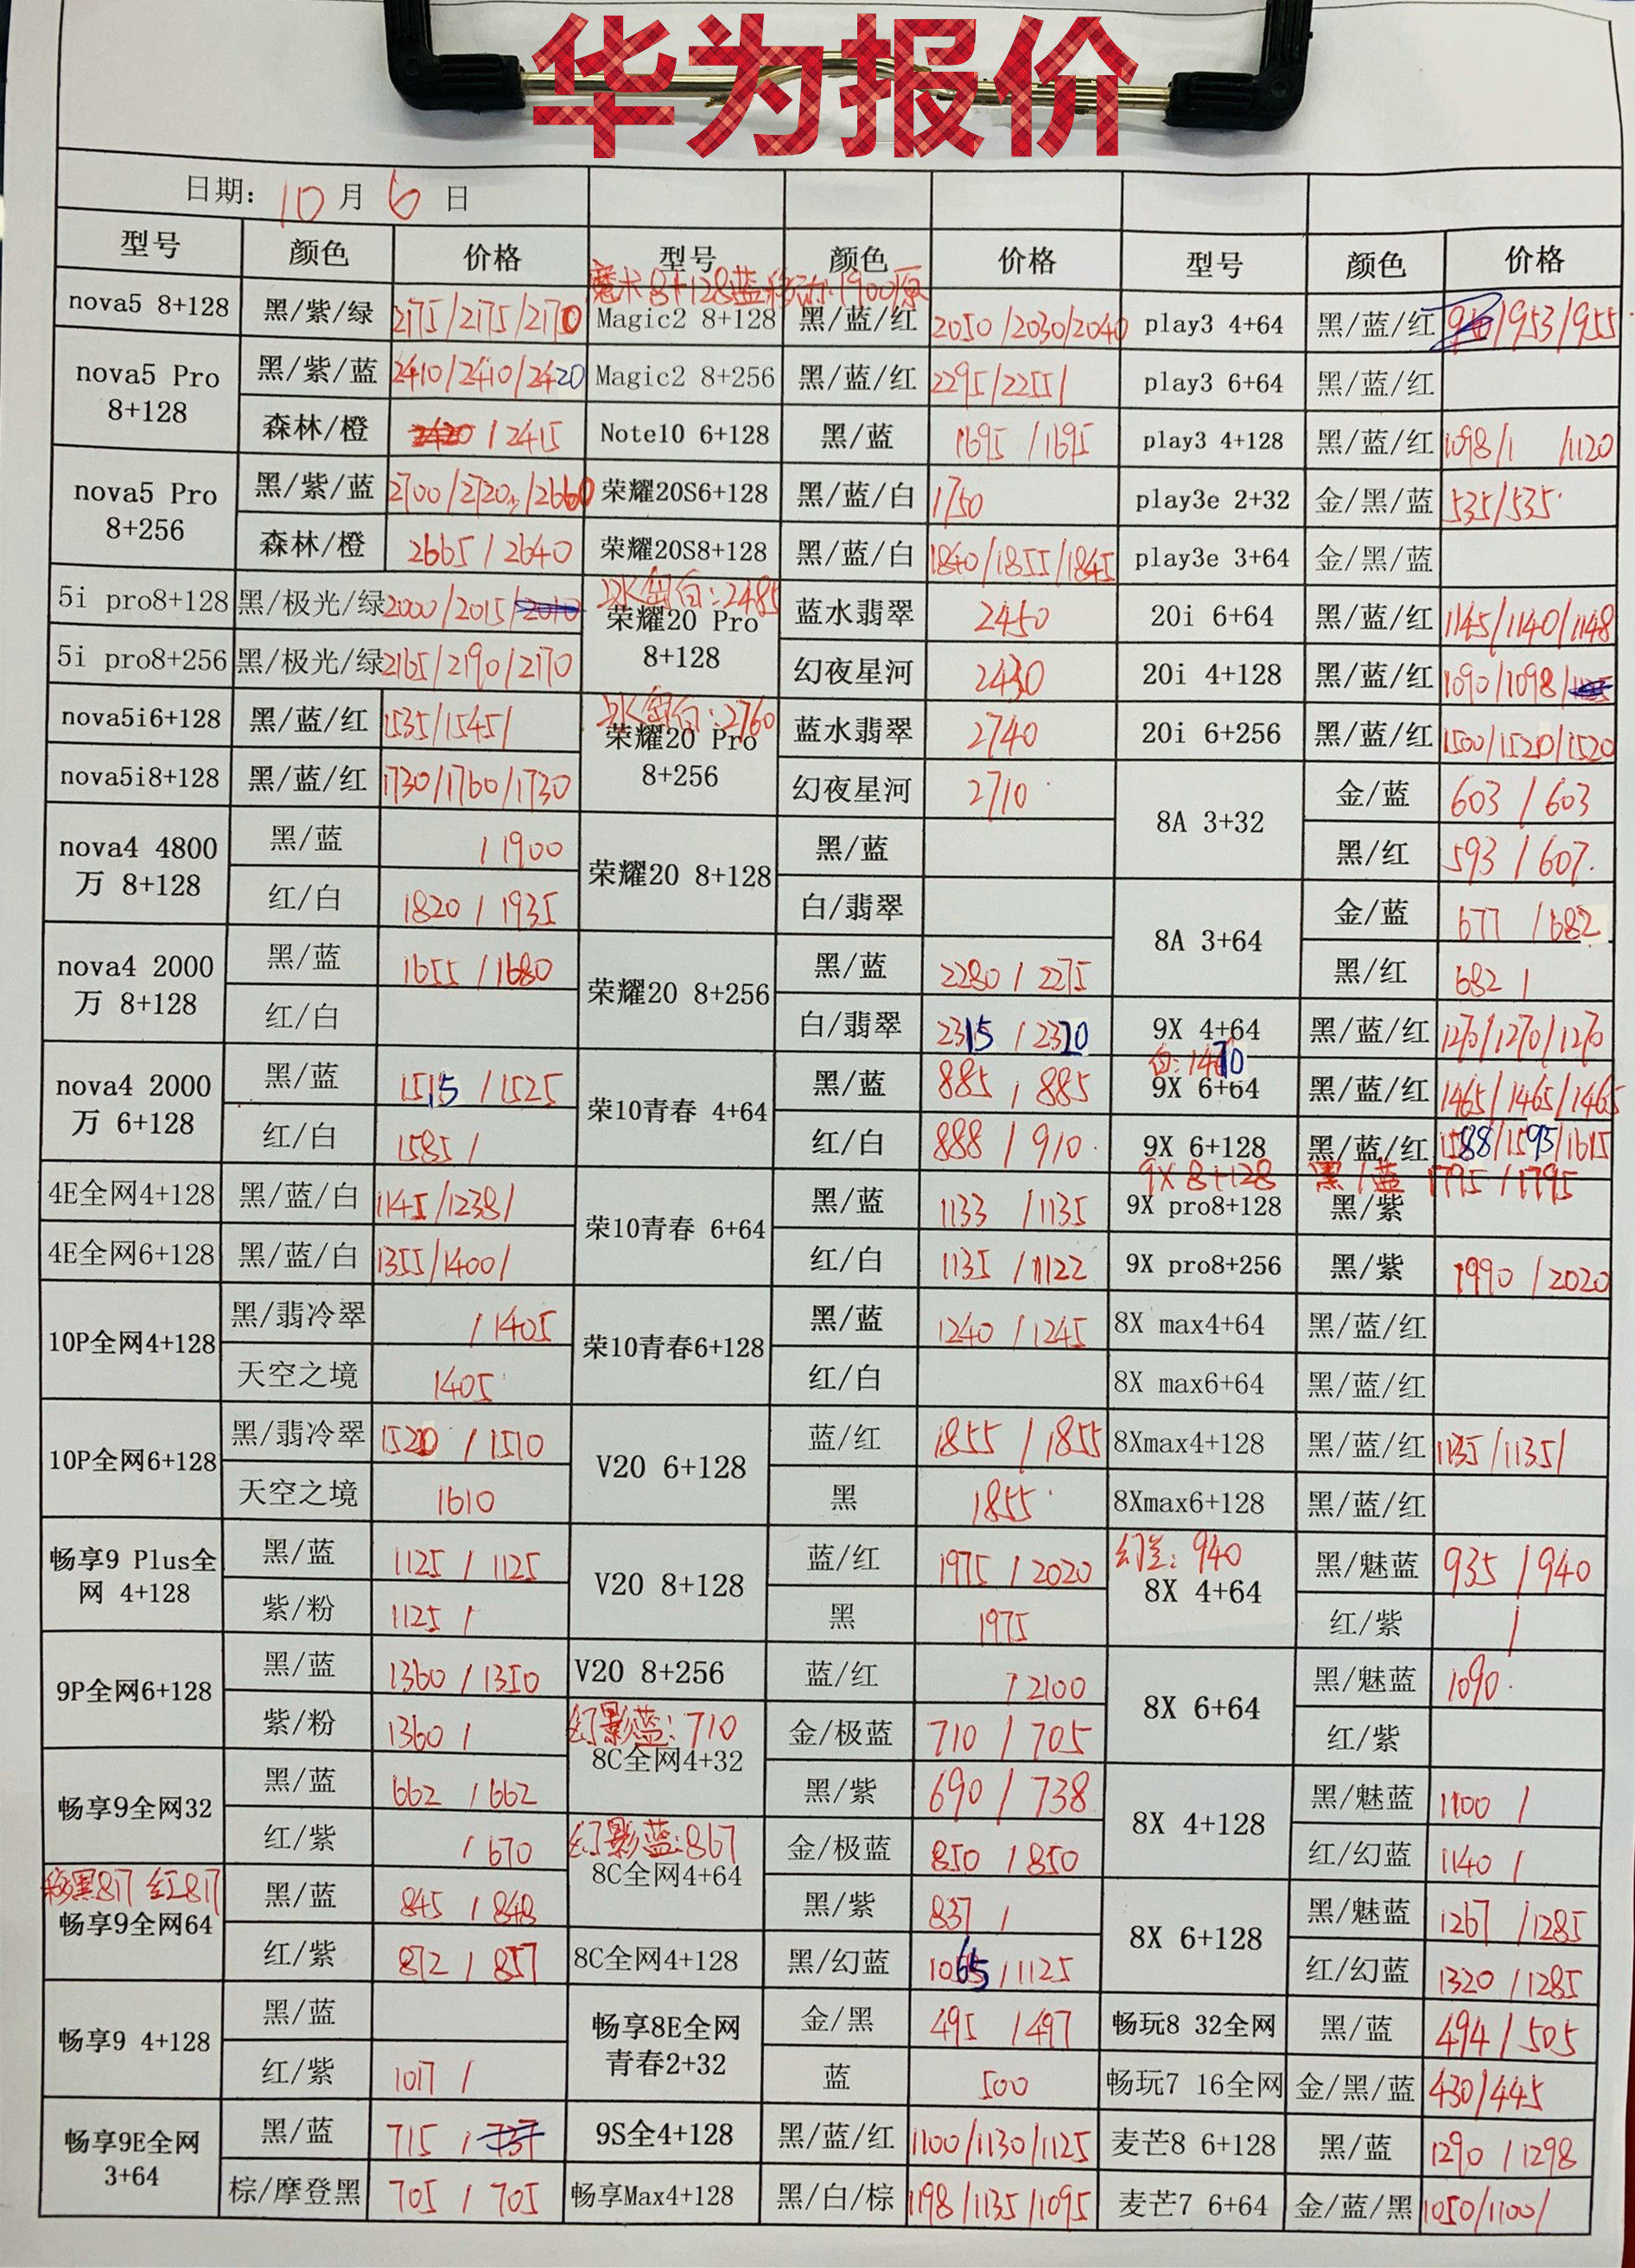 华为报价
日期: 10 月 6 日
型号 颜色 价格 型号 颜色 价格 型号 颜色 价格
nova5 8+128 黑/紫/绿 2175/2175/2170
nova5 Pro 8+128 黑/紫/蓝 2410/2410/2420
森林/橙 /2415
nova5 Pro 8+256 黑/紫/蓝 2700/2720/2660
森林/橙 2665/2640
5i pro8+128 黑/极光/绿 2000/2015/
5i pro8+256 黑/极光/绿 2165/2190/2170
nova5i6+128 黑/蓝/红 1535/1545/
nova5i8+128 黑/蓝/红 1730/1760/1730
nova4 4800万 8+128 黑/蓝 /1900
红/白 1820/1935
nova4 2000万 8+128 黑/蓝 1655/1680
红/白
nova4 2000万 6+128 黑/蓝 1515/1525
红/白 1585/
4E全网4+128 黑/蓝/白 1145/1238/
4E全网6+128 黑/蓝/白 1355/1400/
10P全网4+128 黑/翡冷翠 /1405
天空之境 1405
10P全网6+128 黑/翡冷翠 1520/1510
天空之境 1610
畅享9 Plus全网 4+128 黑/蓝 1125/1125
紫/粉 1125/
9P全网6+128 黑/蓝 1360/1350
紫/粉 1360/
畅享9全网32 黑/蓝 662/662
红/紫 /670
黑817 红817
畅享9全网64 黑/蓝 845/848
红/紫 872/857
畅享9 4+128 黑/蓝
红/紫 1017/
畅享9E全网 3+64 黑/蓝 715/
棕/摩登黑 705/705
魔术8+128蓝移动:1900原
Magic2 8+128 黑/蓝/红 2050/2030/2040
Magic2 8+256 黑/蓝/红 2295/2255/
Note10 6+128 黑/蓝 1695/1695
荣耀20S6+128 黑/蓝/白 1750
荣耀20S8+128 黑/蓝/白 1840/1855/1845
冰岛白:2485
荣耀20 Pro 8+128 蓝水翡翠 2450
幻夜星河 2430
冰岛白:2760
荣耀20 Pro 8+256 蓝水翡翠 2740
幻夜星河 2710
荣耀20 8+128 黑/蓝
白/翡翠
荣耀20 8+256 黑/蓝 2280/2275
白/翡翠 2315/2320
荣10青春 4+64 黑/蓝 885/885
红/白 888/910
荣10青春 6+64 黑/蓝 1133/1135
红/白 1135/1122
荣10青春6+128 黑/蓝 1240/1245
红/白
V20 6+128 蓝/红 1855/1855
黑 1855
V20 8+128 蓝/红 1975/2020
黑 1975
V20 8+256 蓝/红 /2100
幻影蓝:710
8C全网4+32 金/极蓝 710/705
黑/紫 690/738
幻影蓝:867
8C全网4+64 金/极蓝 850/850
黑/紫 837/
8C全网4+128 黑/幻蓝 1065/1125
畅享8E全网青春2+32 金/黑 495/497
蓝 500
9S全4+128 黑/蓝/红 1100/1130/1125
畅享Max4+128 黑/白/棕 1198/1135/1095
play3 4+64 黑/蓝/红 /953/955
play3 6+64 黑/蓝/红
play3 4+128 黑/蓝/红 1098/1 /1120
play3e 2+32 金/黑/蓝 535/535
play3e 3+64 金/黑/蓝
20i 6+64 黑/蓝/红 1145/1140/1148
20i 4+128 黑/蓝/红 1090/1098/
20i 6+256 黑/蓝/红 1500/1520/1520
8A 3+32 金/蓝 603/603
黑/红 593/607
8A 3+64 金/蓝 677/682
黑/红 682/
9X 4+64 黑/蓝/红 1270/1270/1270
白:1470
9X 6+64 黑/蓝/红 1465/1465/1465
9X 6+128 黑/蓝/红 1588/1595/1615
9X 8+128 黑/蓝 1795/1795
9X pro8+128 黑/紫
9X pro8+256 黑/紫 1990/2020
8X max4+64 黑/蓝/红
8X max6+64 黑/蓝/红
8Xmax4+128 黑/蓝/红 1135/1135/
8Xmax6+128 黑/蓝/红
幻兰:940
8X 4+64 黑/魅蓝 935/940
红/紫 /
8X 6+64 黑/魅蓝 1090
红/紫
8X 4+128 黑/魅蓝 1100/
红/幻蓝 1140/
8X 6+128 黑/魅蓝 1267/1285
红/幻蓝 1320/1285
畅玩8 32全网 黑/蓝 494/505
畅玩7 16全网 金/黑/蓝 430/445
麦芒8 6+128 黑/蓝 1290/1298
麦芒7 6+64 金/蓝/黑 1050/1100/